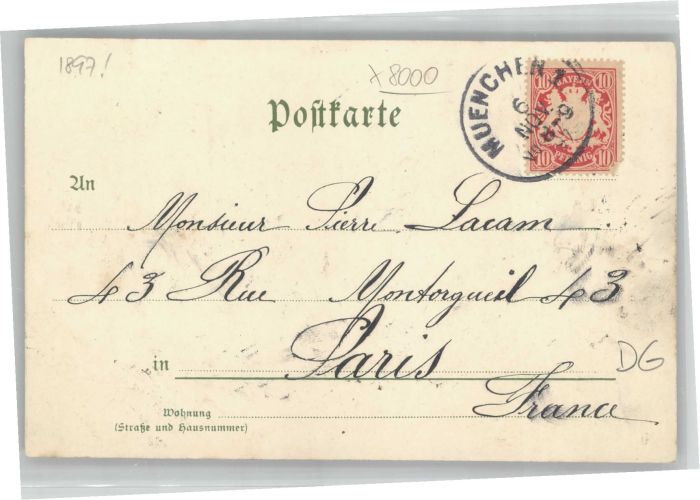 1897!
x8000
MUENCHEN 1
6 NOV
BAYERN
10 10
10 PFENNIG 10
Postkarte
An
Monsieur Pierre Lacam
43 Rue Montorgueil 43
in Paris
DG
France
Wohnung
(Straße und Hausnummer)